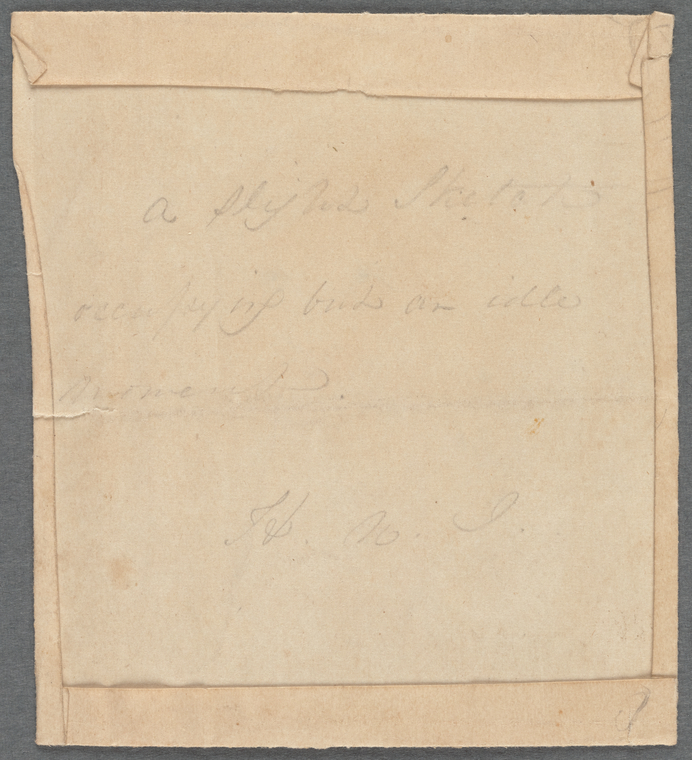 a slight Sketch
occupying but an idle
moment.
H. N. I.